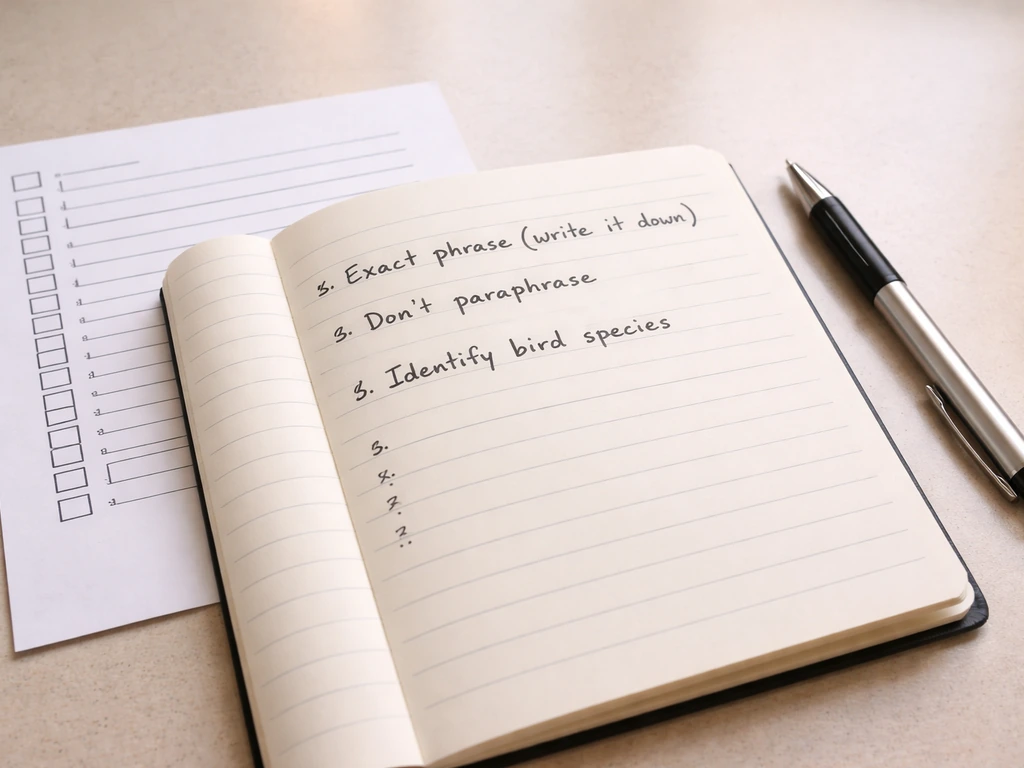 3. Exact phrase (write it down)
3. Don't paraphrase
3. Identify bird species
3.